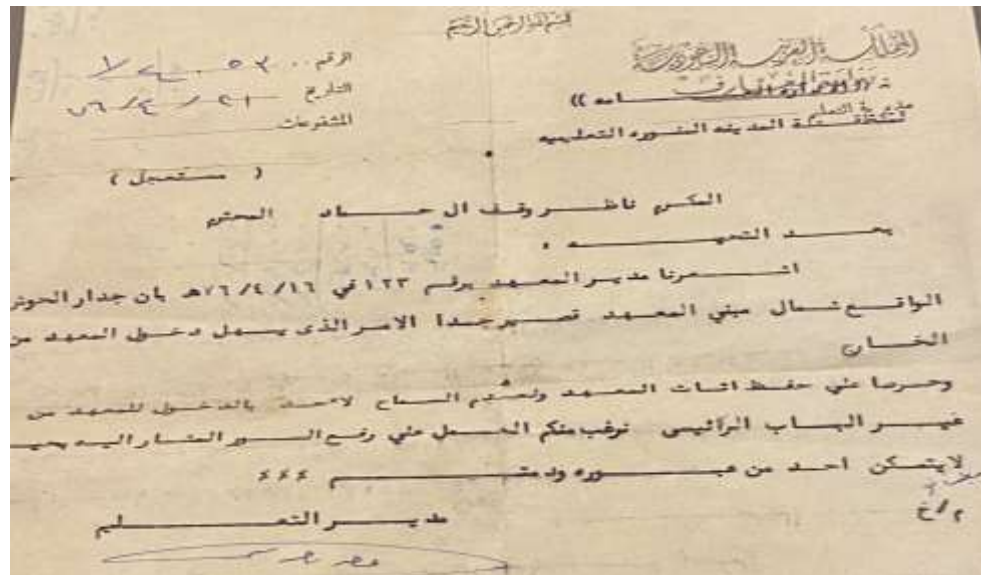 بسم الله الرحمن الرحيم
المملكة العربية السعودية
وزارة المعارف
مديرية التعليم
لمنطقة المدينه المنوره التعليميه
الرقم
التاريخ ٢١ / ٤ / ٧٦
المشفوعات
( مستعجل )
المكرم ناظر وقف ال حماد المحترم
بعد التحيه ،
اشعرنا مدير المعهد برقم ١٢٣ في ٧٦/٤/١٦هـ بان جدار الحوش
الواقع شمال مبني المعهد قصير جدا الامر الذى يسهل دخول المعهد من
الخان
وحرصا علي حفظ اثاث المعهد ولعدم السماح لاحد بالدخول للمعهد من
غير الباب الرائيسى نرغب منكم العمل علي رفع السور المشار اليه بحيث
لايتمكن احد من عبوره ودمتم ؛؛؛
مدير التعليم
م/خ